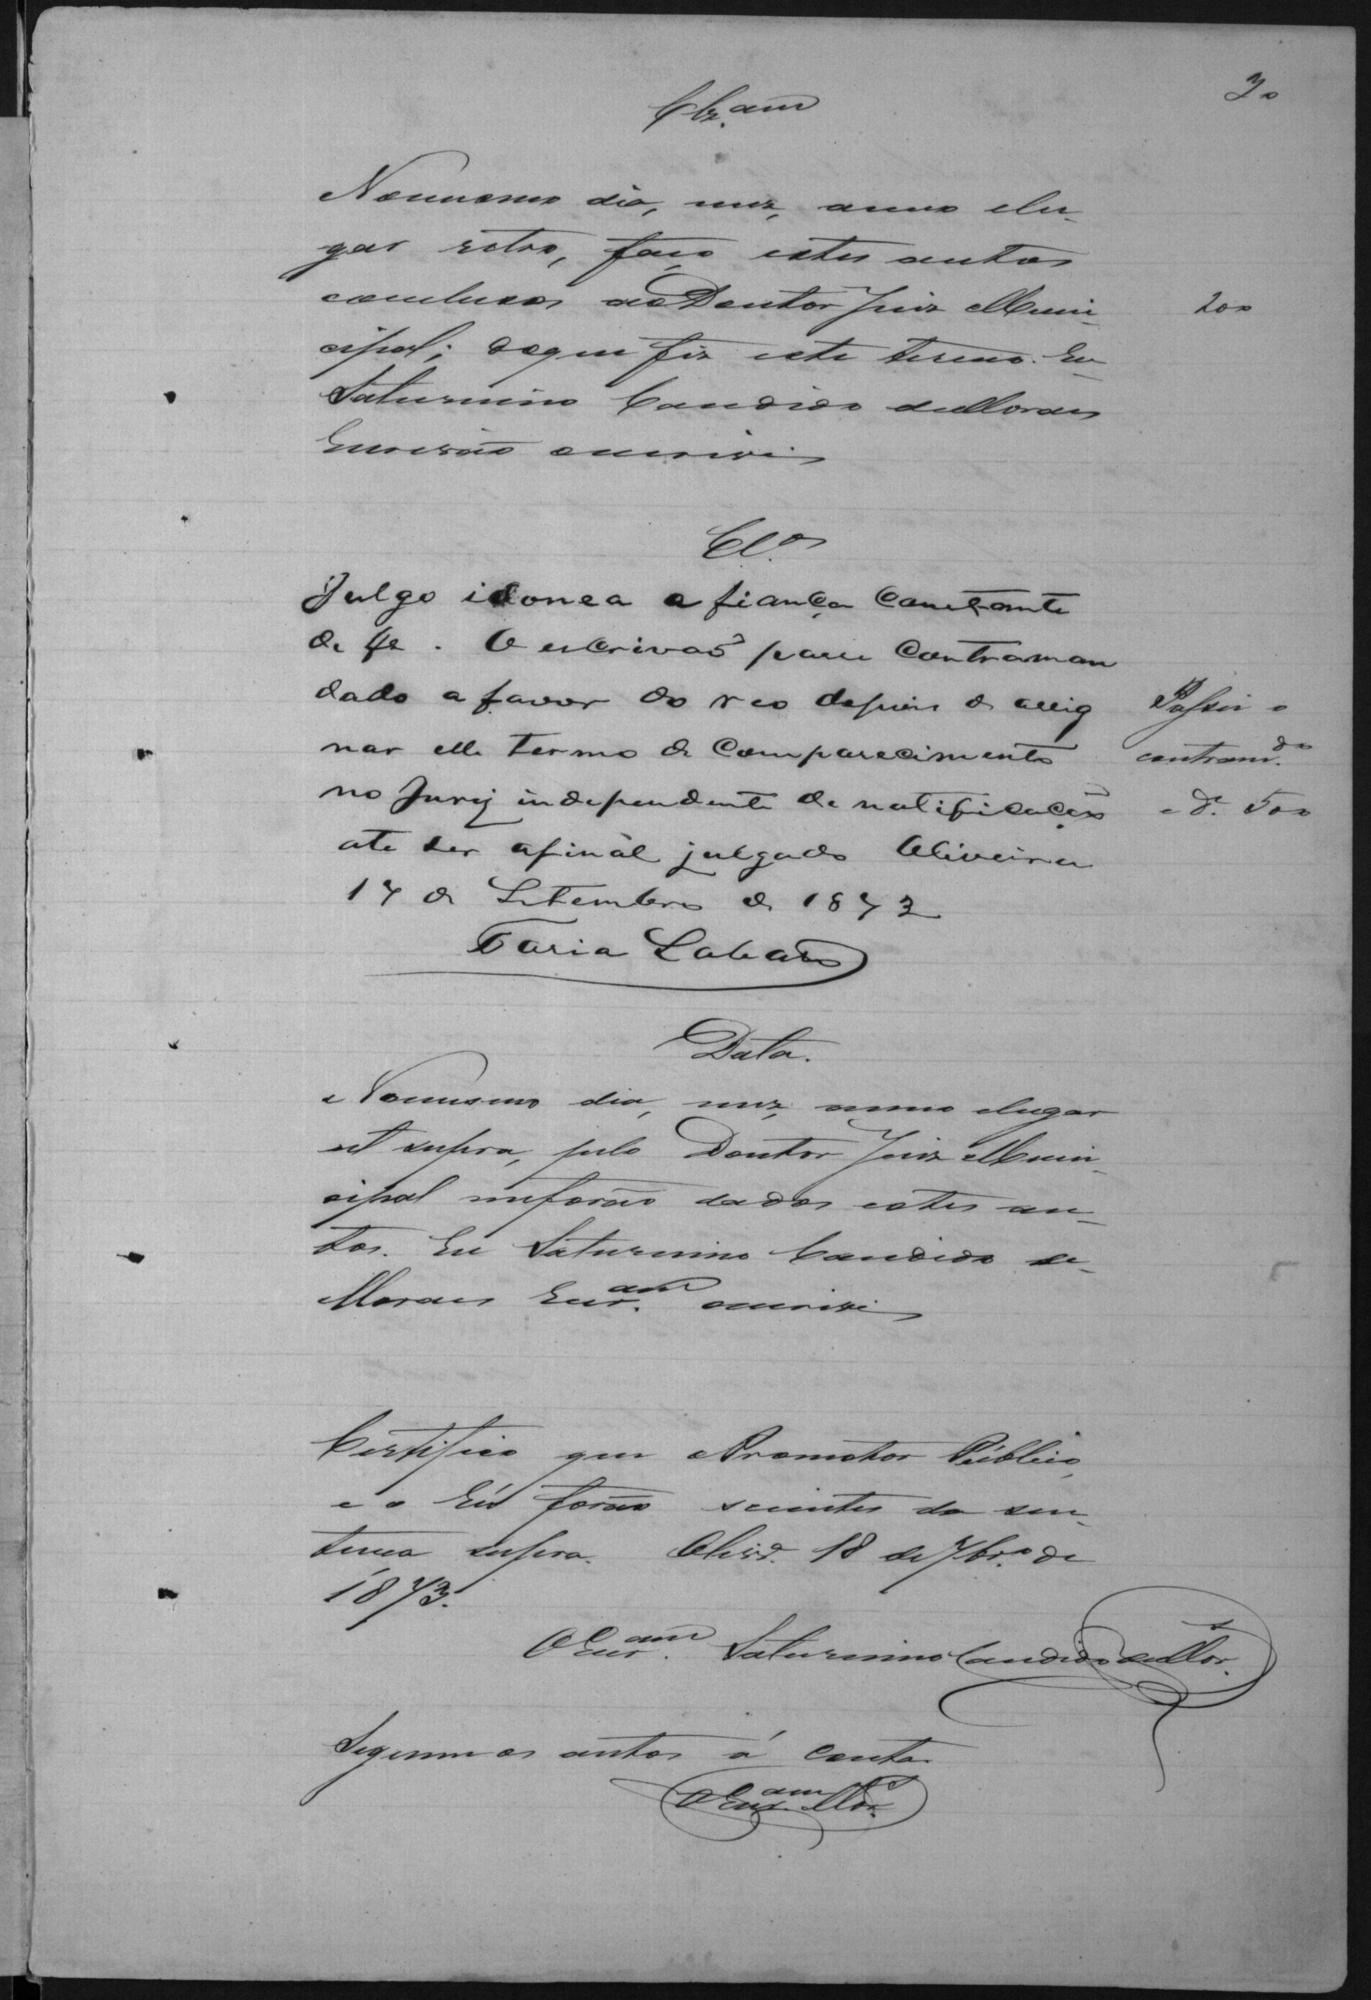 30
Clz.am
No mesmo dia, mez, anno elu-
gar retro, faço estes autos
conclusos ao Doutor Juiz Muni-
cipal; doque fiz este termo. Eu
Saturnino Candido de Moraes
Escrivão oescrivi
200
Cl.os
Julgo idonea a fiança constante
de f . O escrivaõ passe contraman
dado a favor do reo depois de assig
nar elle termo de comparecimento
no Jury independente de notificaçaõ
ate ser afinal julgado Oliveira
17 de Setembro de 1873
Faria Lobato
Passei o
contramdo.
e d. 500
Data.
No mesmo dia, mez, anno elugar
ut supra, pelo Doutor Juiz Muni-
cipal meforão dados estes au-
tos. Eu Saturnino Candido de
Moraes Escr.am oescrivi
Certifico que o Promotor Público,
e o Réo forão scientes da sen-
tença supra. Olivr.a 18 de 7br.o de
1873.
O Escr.am Saturnino Candido de Mor.s
Seguem os autos á conta
O Escr.am Mor.s